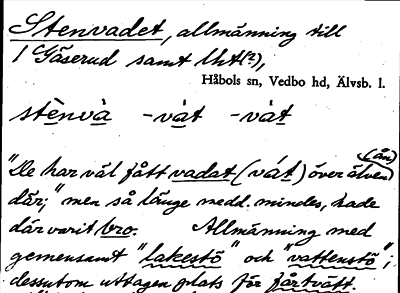 Stenvadet, allmänning till
1 Gäserud samt lht(?),
Håbols sn, Vedbo hd, Älvsb. l.
stènvà -vàt -vát
(ån)
"De har väl fått vadat (vát) över älven
där;" men så länge medd. mindes, hade
där varit bro. Allmänning med
gemensamt "lakestö" och "vattenstö";
dessutom uttagen plats för fårtvätt.